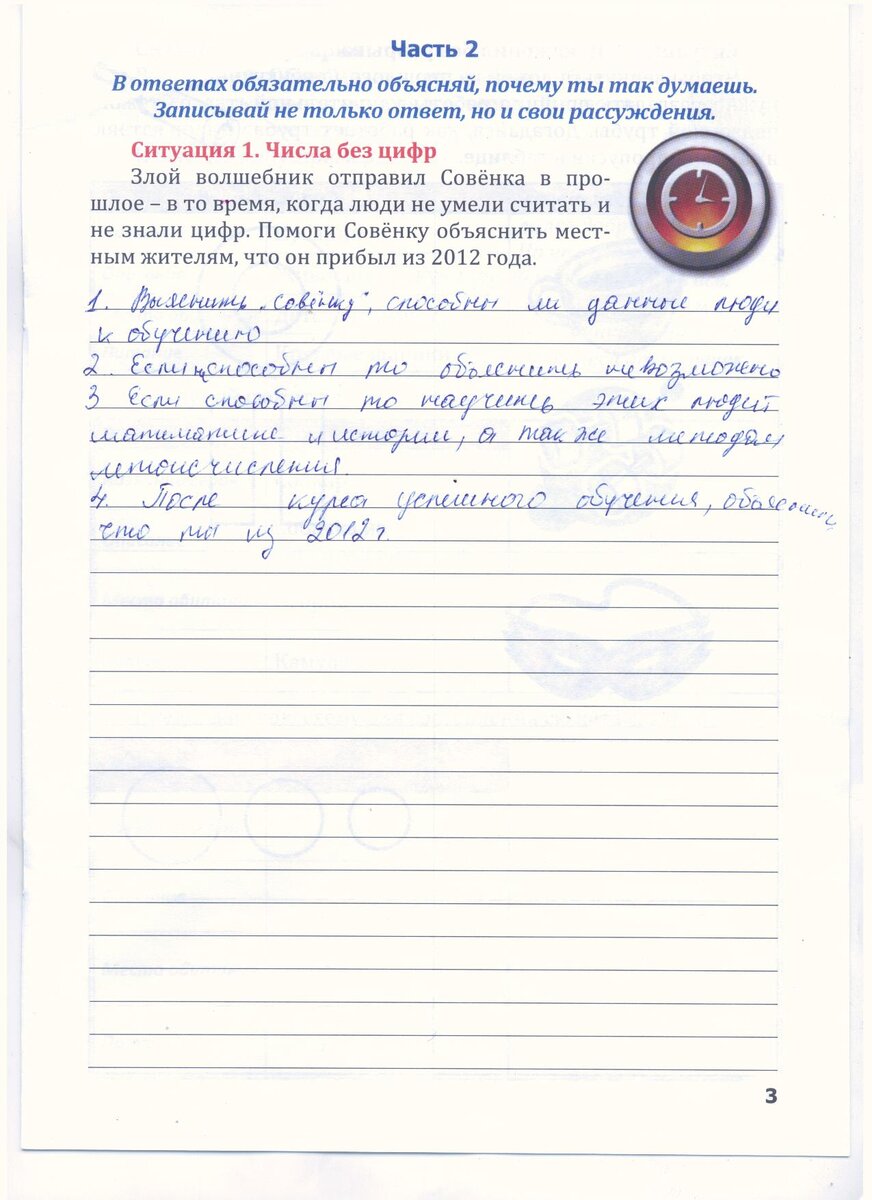 Часть 2
В ответах обязательно объясняй, почему ты так думаешь.
Записывай не только ответ, но и свои рассуждения.
Ситуация 1. Числа без цифр
Злой волшебник отправил Совёнка в про-
шлое – в то время, когда люди не умели считать и
не знали цифр. Помоги Совёнку объяснить мест-
ным жителям, что он прибыл из 2012 года.
1. Выяснить „совёнку", способны ли данные люди
к обучению
2. Если не способны то объяснить невозможно
3 Если способны то научить этих людей
математике и истории, а так же методам
летоисчисления.
4. После курса успешного обучения, объяснить,
что ты из 2012 г.
3